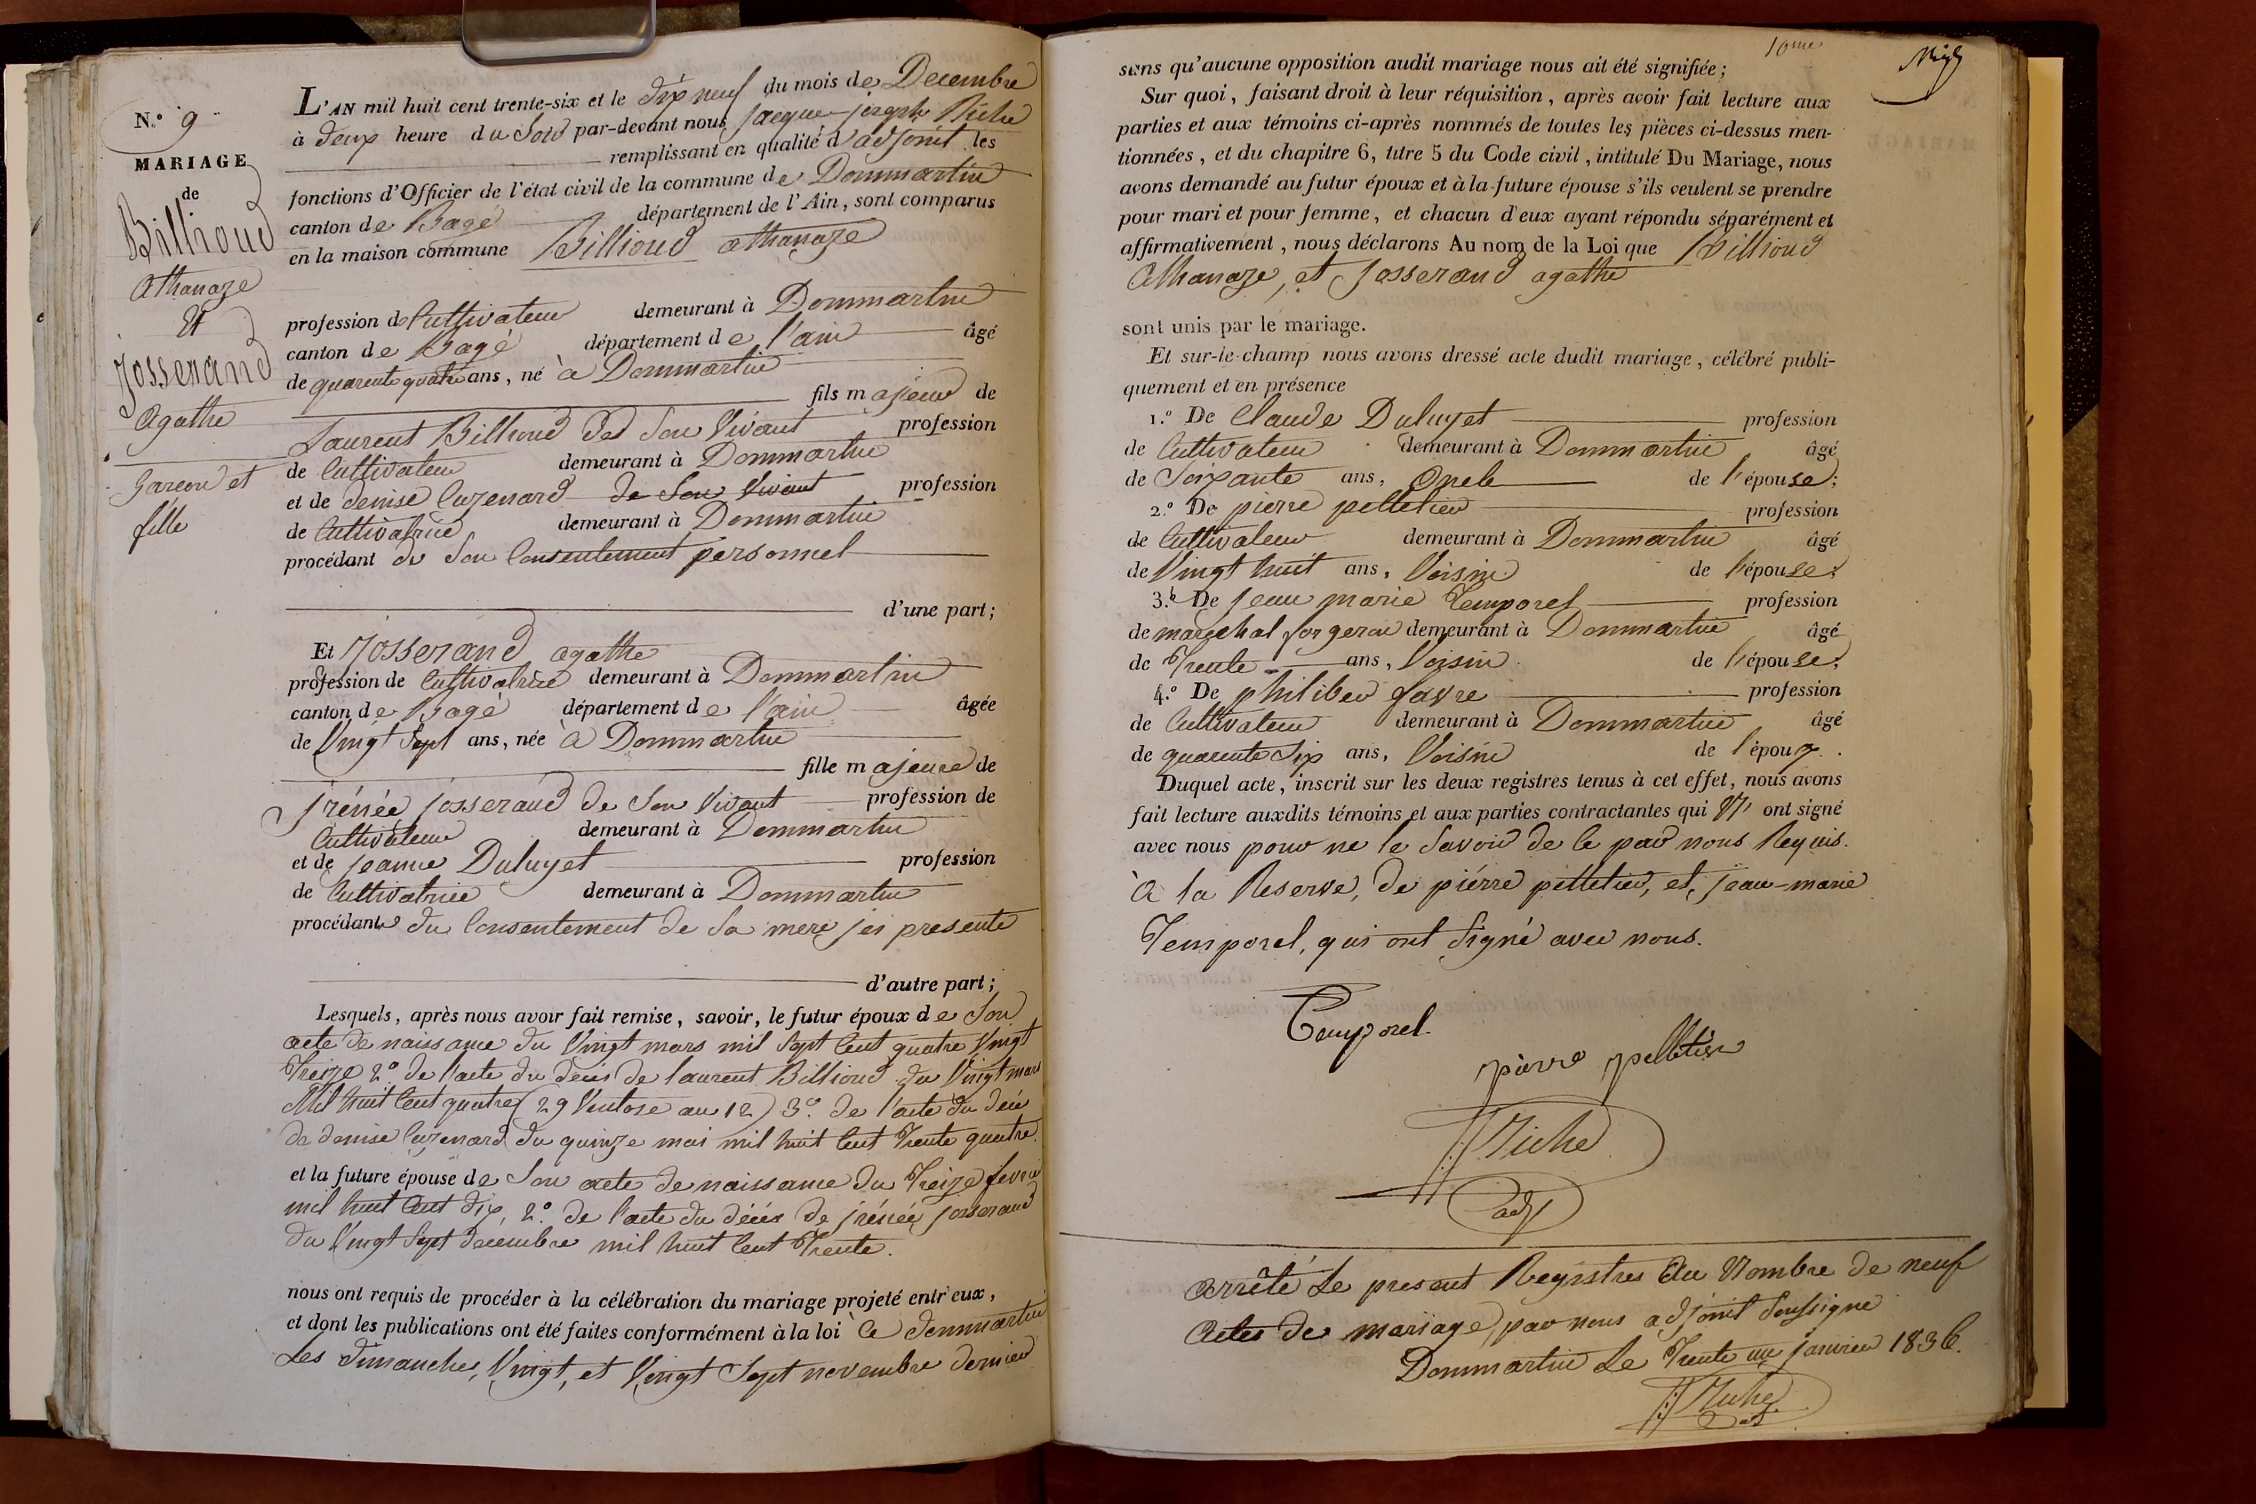 N.º 9
MARIAGE
de
Billioud
Athanaze
Et
Josserand
Agathe
Garcon et
fille
L'AN mil huit cent trente-six et le dix neuf du mois de Decembre
à deux heure du Soir par-devant nous jacque joseph Miche
remplissant en qualité d'adjoint les
fonctions d'Officier de l'état civil de la commune de Dommartin
canton de Bagé département de l'Ain, sont comparus
en la maison commune Billioud athanaze
profession de Cultivateur demeurant à Dommartin
canton de Bagé département de l'ain âgé
de quarente quatre ans, né à Dommartin
fils majeur de
Laurent Billioud de Son Vivant profession
de Cultivateur demeurant à Dommartin
et de denise Cuzenard de Son Vivant profession
de Cultivatrice demeurant à Dommartin
procédant de Son Consentement personnel
d'une part;
Et Josserand agathe
profession de Cultivatrice demeurant à Dommartin
canton de Bagé département de l'ain âgée
de Vingt Sept ans, née à Dommartin
fille majeure de
jrénée josserand de Son Vivant profession de
Cultivateur demeurant à Dommartin
et de jeanne Duluyet profession
de Cultivatrice demeurant à Dommartin
procédante du Consentement de Sa mere jci presente
d'autre part;
Lesquels, après nous avoir fait remise, savoir, le futur époux de Son
acte de naissance du Vingt mars mil Sept Cent quatre Vingt
Treize 2º de l'acte du deces de laurent Billioud du Vingt mars
Mil huit Cent quatre (29 Ventose an 12) 3º. de l'acte du deces
de denise Cuzenard du quinze mai mil huit Cent Trente quatre.
et la future épouse de Son acte de naissance du Treize fevrier
mil huit Cent dix, 2º. de l'acte du décés de jrénée josserand
du Vingt Sept decembre mil huit Cent Trente.
nous ont requis de procéder à la célébration du mariage projeté entr'eux,
et dont les publications ont été faites conformément à la loi à Ce dommartin
Les dimanches, Vingt, et Vingt Sept novembre dernier
10me
sans qu'aucune opposition audit mariage nous ait été signifiée;
Sur quoi, faisant droit à leur réquisition, après avoir fait lecture aux
parties et aux témoins ci-après nommés de toutes les pièces ci-dessus men-
tionnées, et du chapitre 6, titre 5 du Code civil, intitulé Du Mariage, nous
avons demandé au futur époux et à la future épouse s'ils veulent se prendre
pour mari et pour femme, et chacun d'eux ayant répondu séparément et
affirmativement, nous déclarons Au nom de la Loi que Billioud
Athanaze, et Josserand agathe
sont unis par le mariage.
Et sur-le-champ nous avons dressé acte dudit mariage, célébré publi-
quement et en présence
1.º De Claude Duluyet profession
de Cultivateur demeurant à Dommartin âgé
de Soixante ans, Oncle de l'épouse;
2.º De pierre pelletier profession
de Cultivateur demeurant à Dommartin âgé
de Vingt huit ans, Voisin de l'épouse;
3.º De jean marie Temporel profession
de marechal forgeron demeurant à Dommartin âgé
de Trente ans, Voisin de l'épouse;
4.º De philiber favre profession
de Cultivateur demeurant à Dommartin âgé
de quarente Six ans, Voisin de l'époux.
Duquel acte, inscrit sur les deux registres tenus à cet effet, nous avons
fait lecture auxdits témoins et aux parties contractantes qui N' ont signé
avec nous pour ne le Savoir de ce par nous Requis.
à la Reserve, de piérre pelletier, et, jean-marie
Temporel, qui ont Signé avec nous.
Temporel.
pierre pelletier
Miche
adj
Arrêté Le present Registres Au Nombre de neuf
Actes de mariage, par nous adjoint Soussigné
Dommartin Le Trente un janvier 1836.
Miche